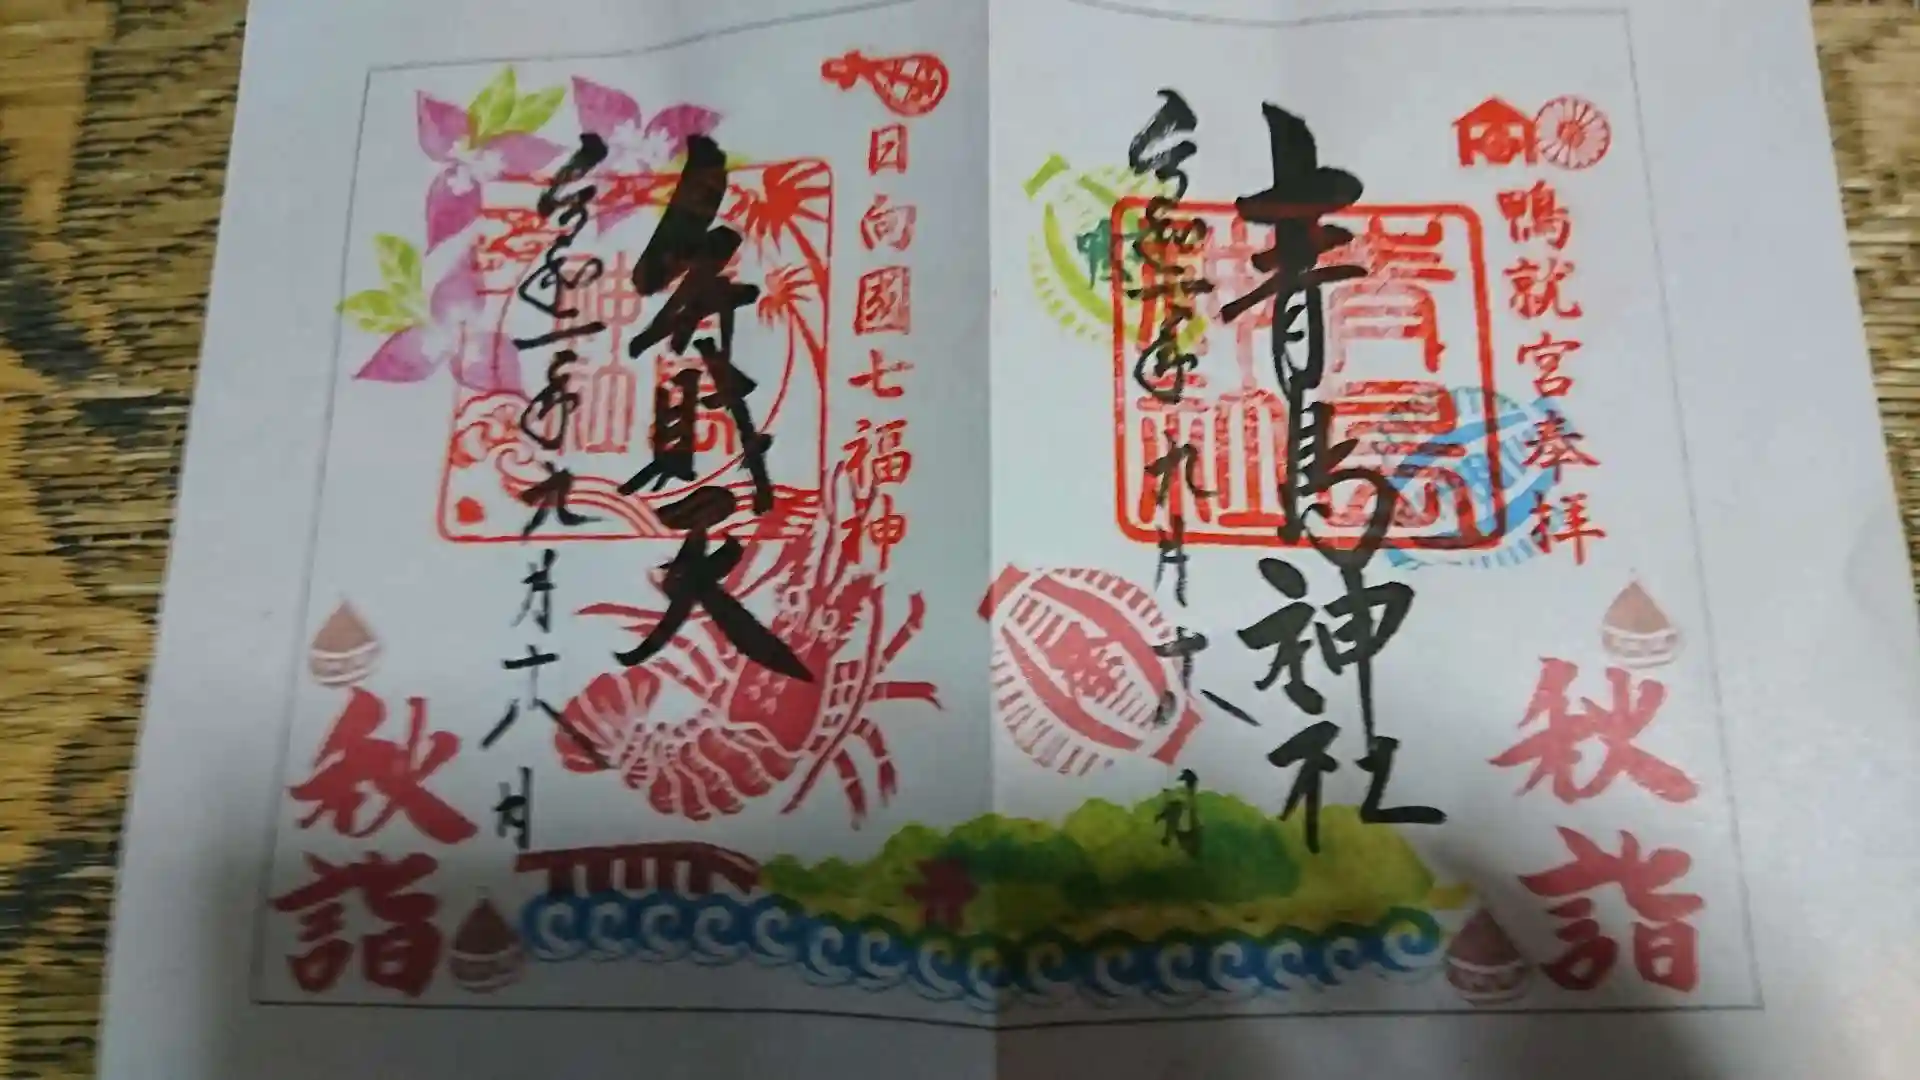 鴨就宮奉拝
青島神社
青島神社
令和二年九月十八日
秋詣
日向國七福神
弁財天
青島神社
令和二年九月十八日
秋詣